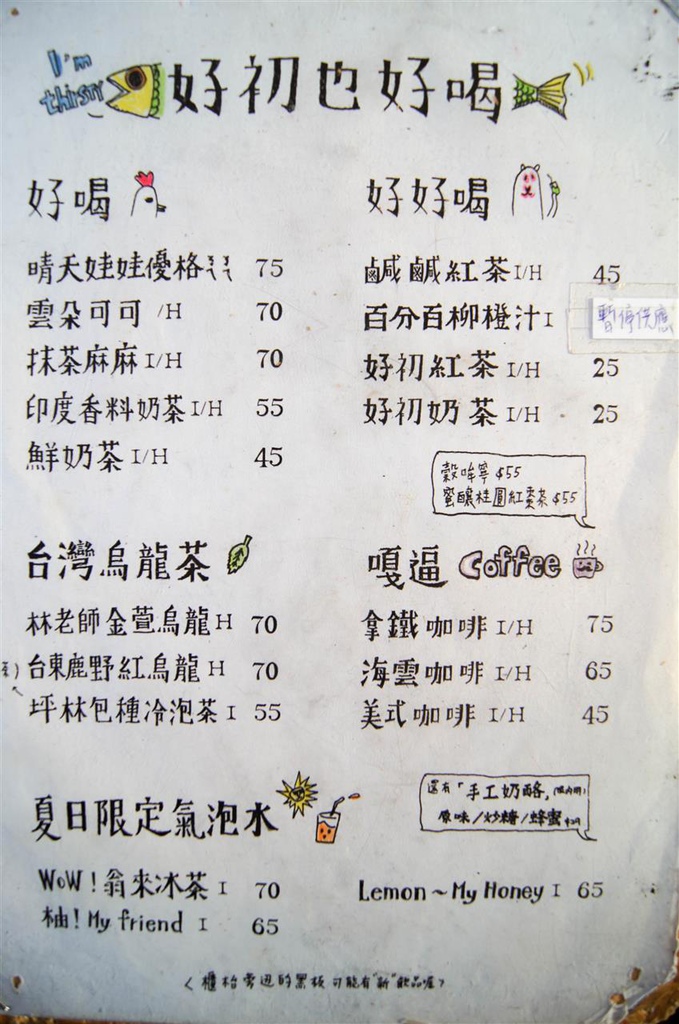 I'm thirsty
好初也好喝
好喝
晴天娃娃優格 75
雲朵可可 /H 70
抹茶麻麻 I/H 70
印度香料奶茶 I/H 55
鮮奶茶 I/H 45
好好喝
鹹鹹紅茶 I/H 45
百分百柳橙汁 I
暫停供應
好初紅茶 I/H 25
好初奶茶 I/H 25
穀哞寧 $55
蜜釀桂圓紅棗茶 $55
台灣烏龍茶
林老師金萱烏龍 H 70
台東鹿野紅烏龍 H 70
坪林包種冷泡茶 I 55
嘎逼 Coffee
拿鐵咖啡 I/H 75
海雲咖啡 I/H 65
美式咖啡 I/H 45
還有「手工奶酪」
原味/炒糖/蜂蜜
夏日限定氣泡水
WoW!翁來冰茶 I 70
柚! My friend I 65
Lemon~My Honey I 65
<櫃枱旁邊的黑板可能有"新"飲品喔?